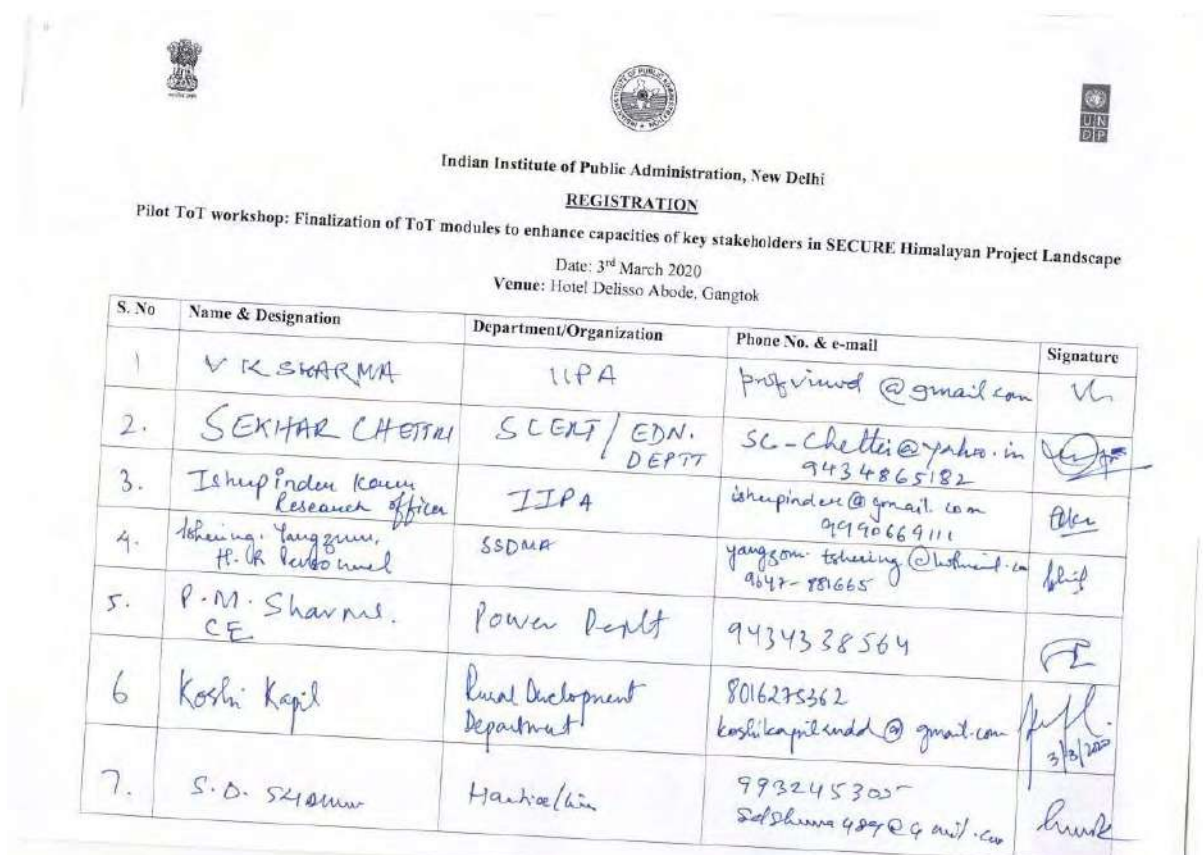 INDIAN INSTITUTE OF PUBLIC ADMINISTRATION
UN
DP
Indian Institute of Public Administration, New Delhi
REGISTRATION
Pilot ToT workshop: Finalization of ToT modules to enhance capacities of key stakeholders in SECURE Himalayan Project Landscape
Date: 3rd March 2020
Venue: Hotel Delisso Abode, Gangtok
S. No Name & Designation Department/Organization Phone No. & e-mail Signature
1 V K SHARMA IIPA profvinod@gmail.com
2. SEKHAR CHETTRI SCERT / EDN. DEPTT sc-chettri@yahoo.in
9434865182
3. Ishupinder Kaur
Research officer IIPA ishupinder@gmail.com
9990669111
4. Tshering Yangzom,
H.R Personnel SSDMA yangzom.tshering@hotmail.co
9647-881665
5. P.M. Sharma.
CE Power Deptt 9434338564
6 Koshi Kapil Rural Development
Department 8016275362
koshikapilrmdd@gmail.com
3/3/2020
7. S.D.